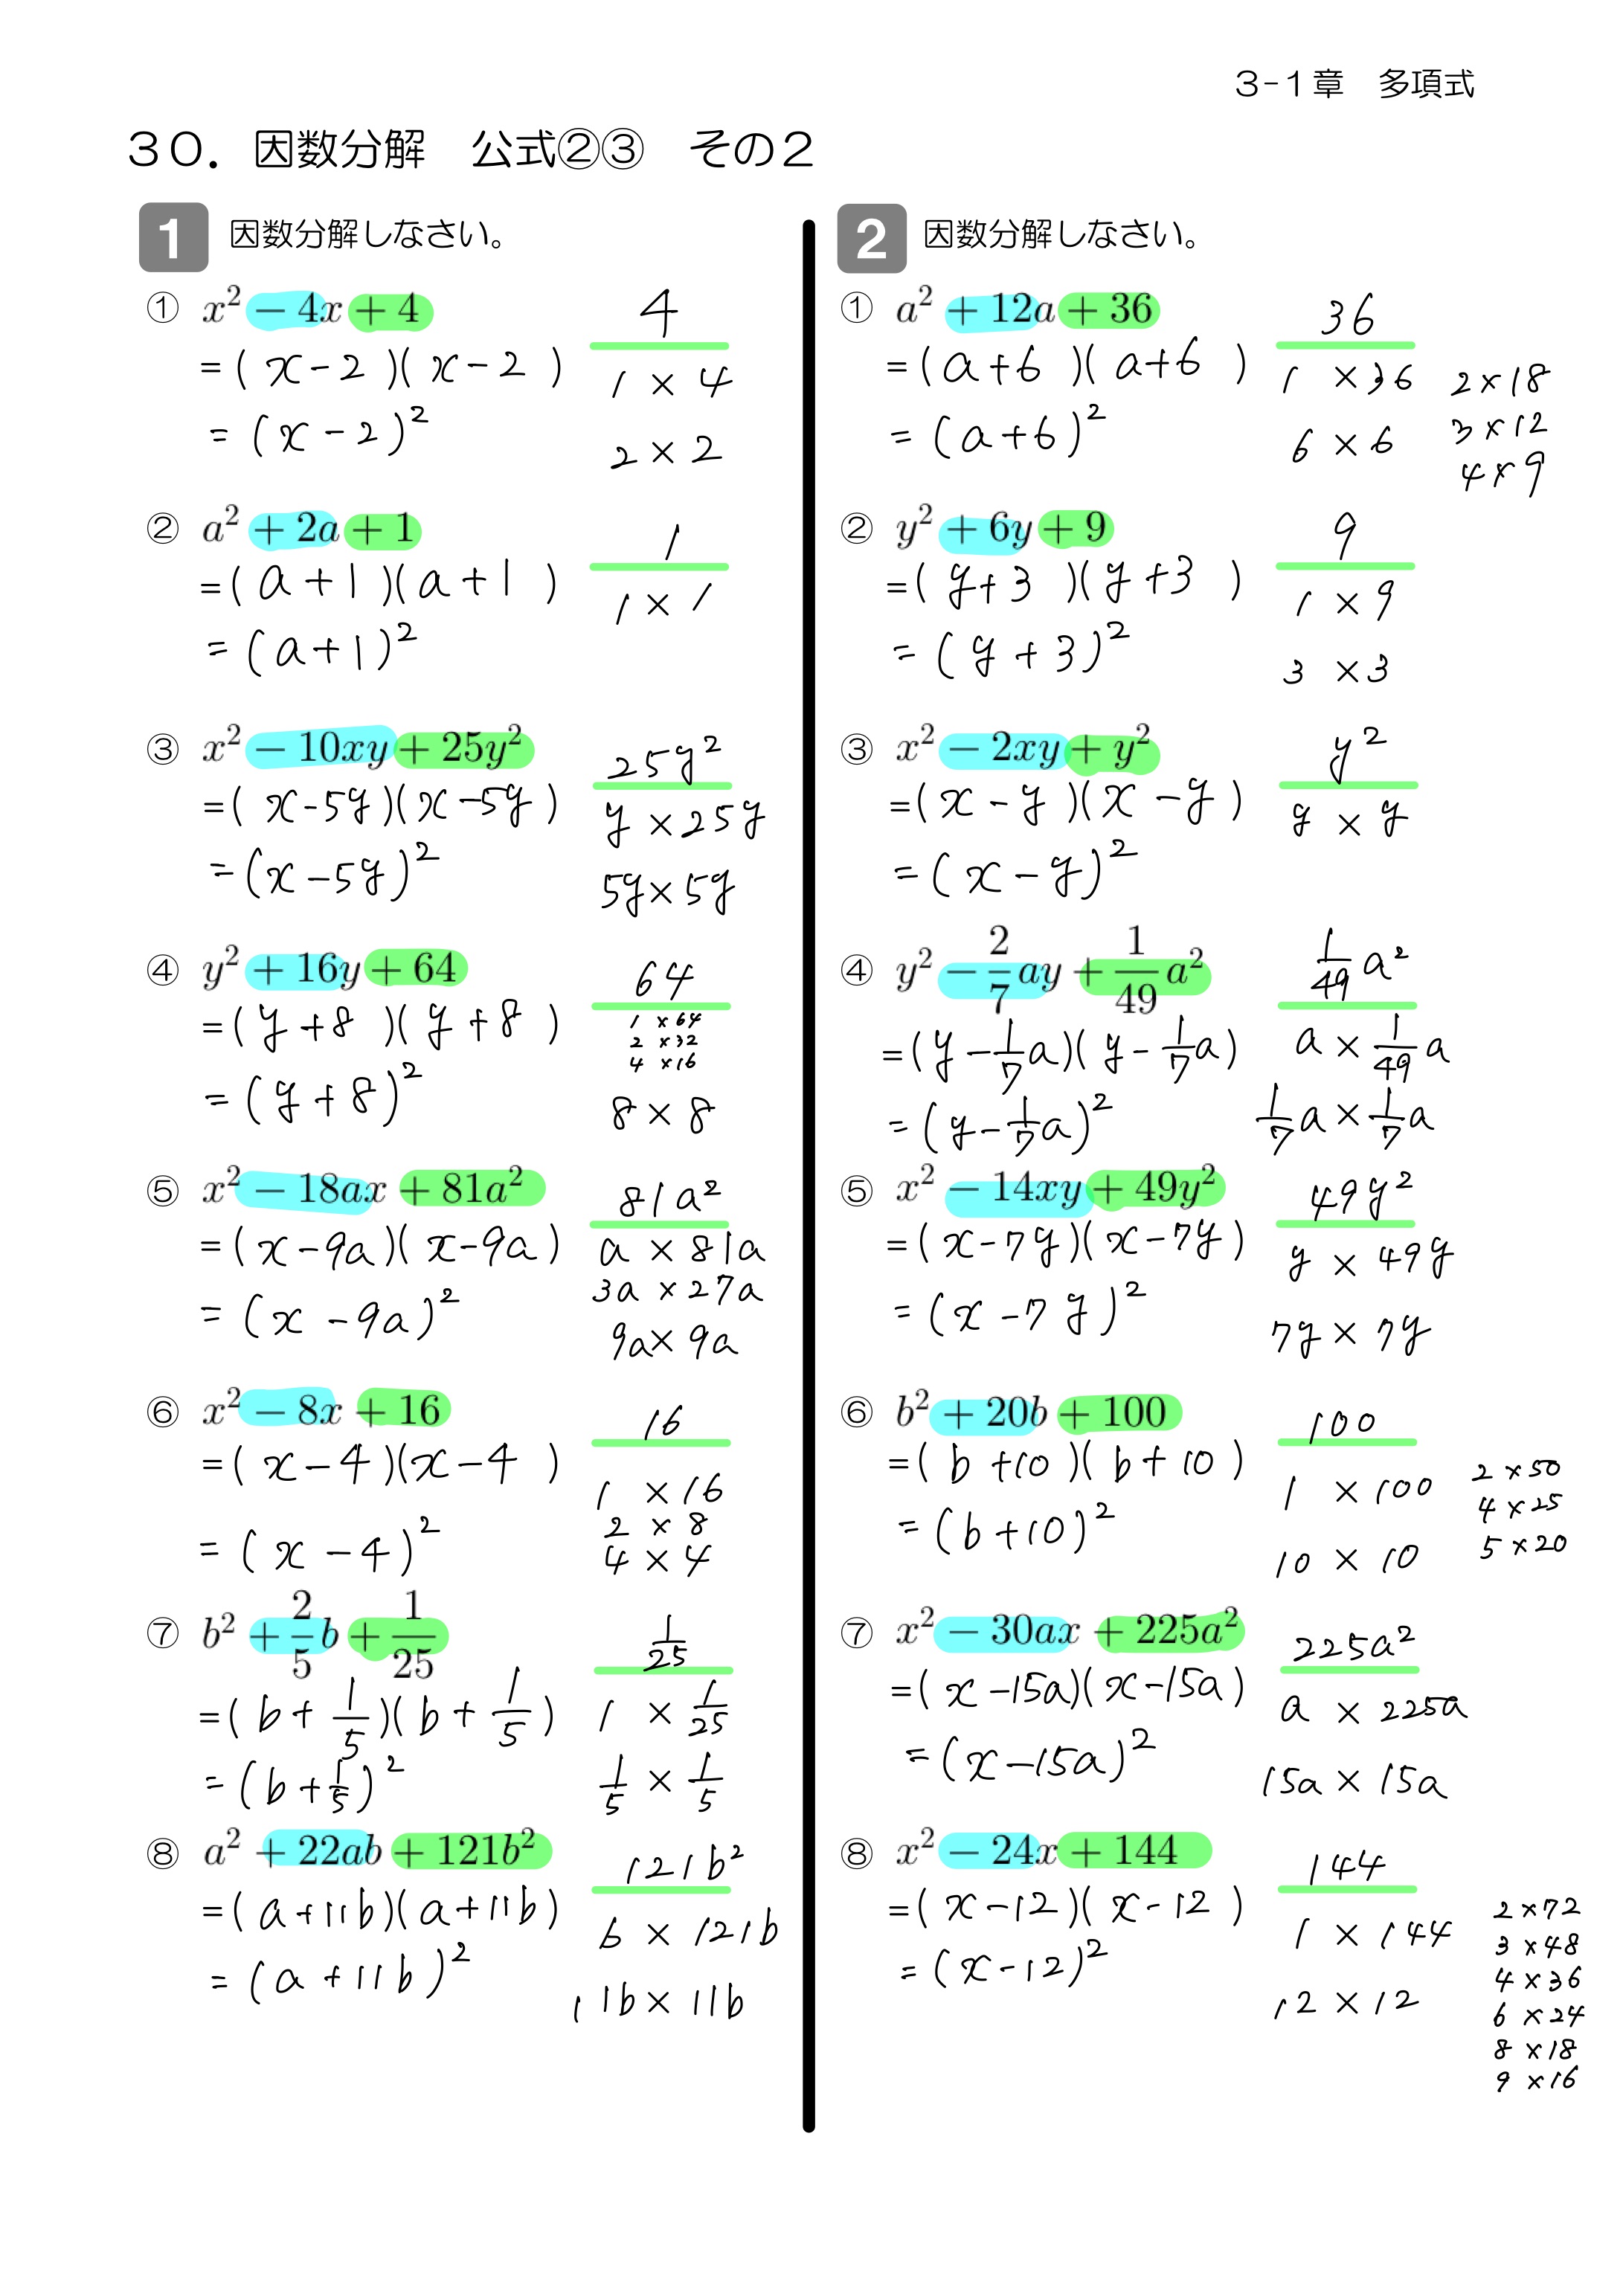 3-1章　多項式
30．因数分解　公式②③　その2
1　因数分解しなさい。
① x² − 4x + 4
= ( x − 2 )( x − 2 )
= (x − 2)²
4
1 × 4
2 × 2
② a² + 2a + 1
= ( a + 1 )( a + 1 )
= (a + 1)²
1
1 × 1
③ x² − 10xy + 25y²
= ( x − 5y )( x − 5y )
= (x − 5y)²
25y²
y × 25y
5y × 5y
④ y² + 16y + 64
= ( y + 8 )( y + 8 )
= (y + 8)²
64
1 × 64
2 × 32
4 × 16
8 × 8
⑤ x² − 18ax + 81a²
= ( x − 9a )( x − 9a )
= (x − 9a)²
81a²
a × 81a
3a × 27a
9a × 9a
⑥ x² − 8x + 16
= ( x − 4 )( x − 4 )
= (x − 4)²
16
1 × 16
2 × 8
4 × 4
⑦ b² + 2/5 b + 1/25
= ( b + 1/5 )( b + 1/5 )
= (b + 1/5)²
1/25
1 × 1/25
1/5 × 1/5
⑧ a² + 22ab + 121b²
= ( a + 11b )( a + 11b )
= (a + 11b)²
121b²
b × 121b
11b × 11b
2　因数分解しなさい。
① a² + 12a + 36
= ( a + 6 )( a + 6 )
= (a + 6)²
36
1 × 36
6 × 6
2 × 18
3 × 12
4 × 9
② y² + 6y + 9
= ( y + 3 )( y + 3 )
= (y + 3)²
9
1 × 9
3 × 3
③ x² − 2xy + y²
= ( x − y )( x − y )
= (x − y)²
y²
y × y
④ y² − 2/7 ay + 1/49 a²
= ( y − 1/7 a )( y − 1/7 a )
= (y − 1/7 a)²
1/49 a²
a × 1/49 a
1/7 a × 1/7 a
⑤ x² − 14xy + 49y²
= ( x − 7y )( x − 7y )
= (x − 7y)²
49y²
y × 49y
7y × 7y
⑥ b² + 20b + 100
= ( b + 10 )( b + 10 )
= (b + 10)²
100
1 × 100
10 × 10
2 × 50
4 × 25
5 × 20
⑦ x² − 30ax + 225a²
= ( x − 15a )( x − 15a )
= (x − 15a)²
225a²
a × 225a
15a × 15a
⑧ x² − 24x + 144
= ( x − 12 )( x − 12 )
= (x − 12)²
144
1 × 144
12 × 12
2 × 72
3 × 48
4 × 36
6 × 24
8 × 18
9 × 16